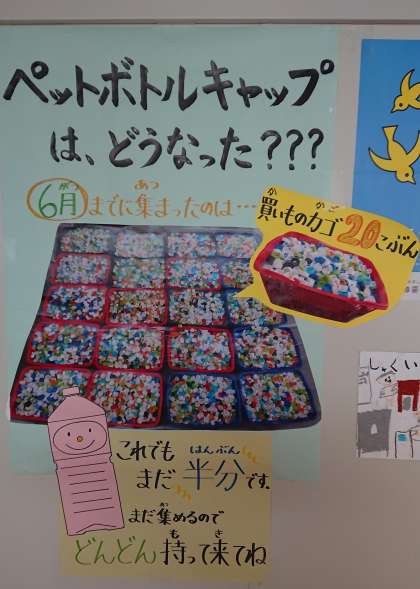 ペットボトルキャップ
は、どうなった???
6月までに集まったのは…
がつ
あつ
買いものカゴ20こぶん
か
かご
これでも
まだ半分です。
はんぶん
まだ集めるので
あつ
どんどん持って来てね
も
き
しゅくい